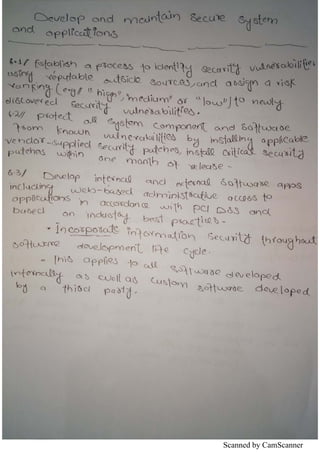 Develop and maintain secure system
and applications
6.1/ Establish a process to identify security vulnerabilities
using reputable outside sources, and assign a risk
ranking (e.g/ "high", "medium" or "low") to newly
discovered security vulnerabilities.
6.2// protect all system component and software
from known vulnerabilities by installing applicable
vendor-supplied security patches, install critical security
patches within one month of release -
6.3/ Develop internal and external software apps
including web-based administrative access to
applications in accordance with PCI DSS and
based on industry best practices -
• Incorporate information security throughout
software development life cycle.
- this applies to all software developed
internally as well as custom software developed
by a third party.
Scanned by CamScanner